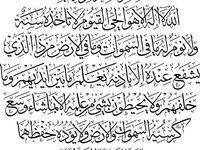 الله لا إله إلا هو الحي القيوم لا تأخذه سنة
ولا نوم له ما في السموات وما في الأرض من ذا الذي
يشفع عنده إلا بإذنه يعلم ما بين أيديهم وما
خلفهم ولا يحيطون بشيء من علمه إلا بما شاء وسع
كرسيه السموات والأرض ولا يؤده حفظهما